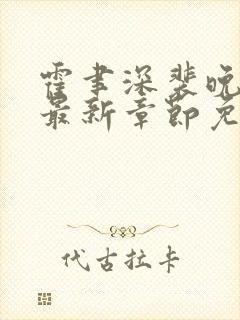 霍聿深裴晚
最新章节免
代古拉卡